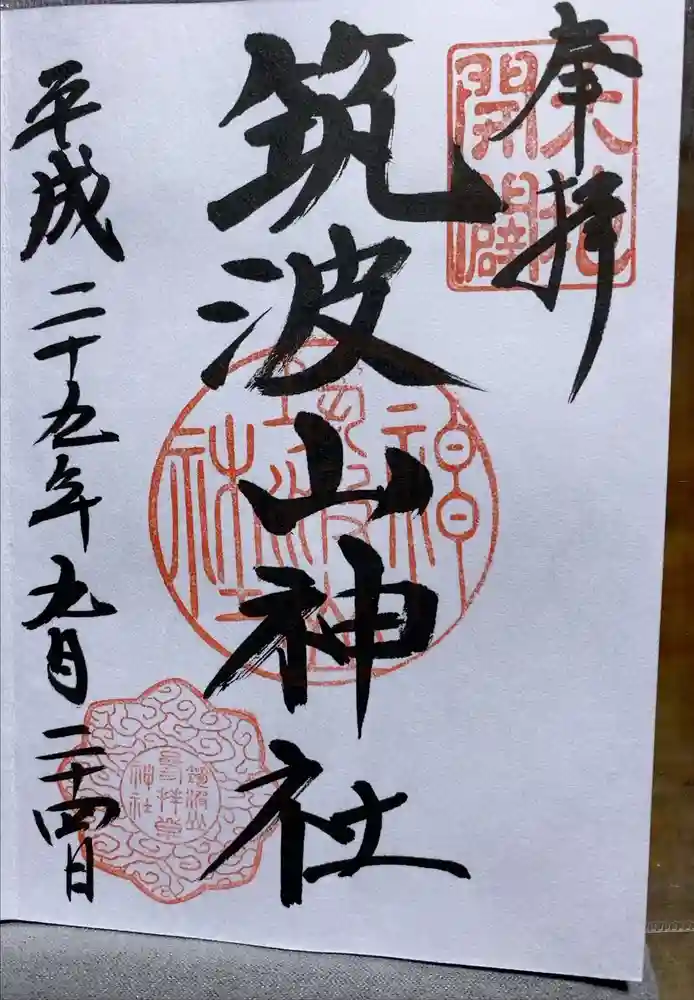 奉拝
天地
開闢
筑波山神社
筑波山
神社
平成二十九年九月二十四日
筑波山
神社